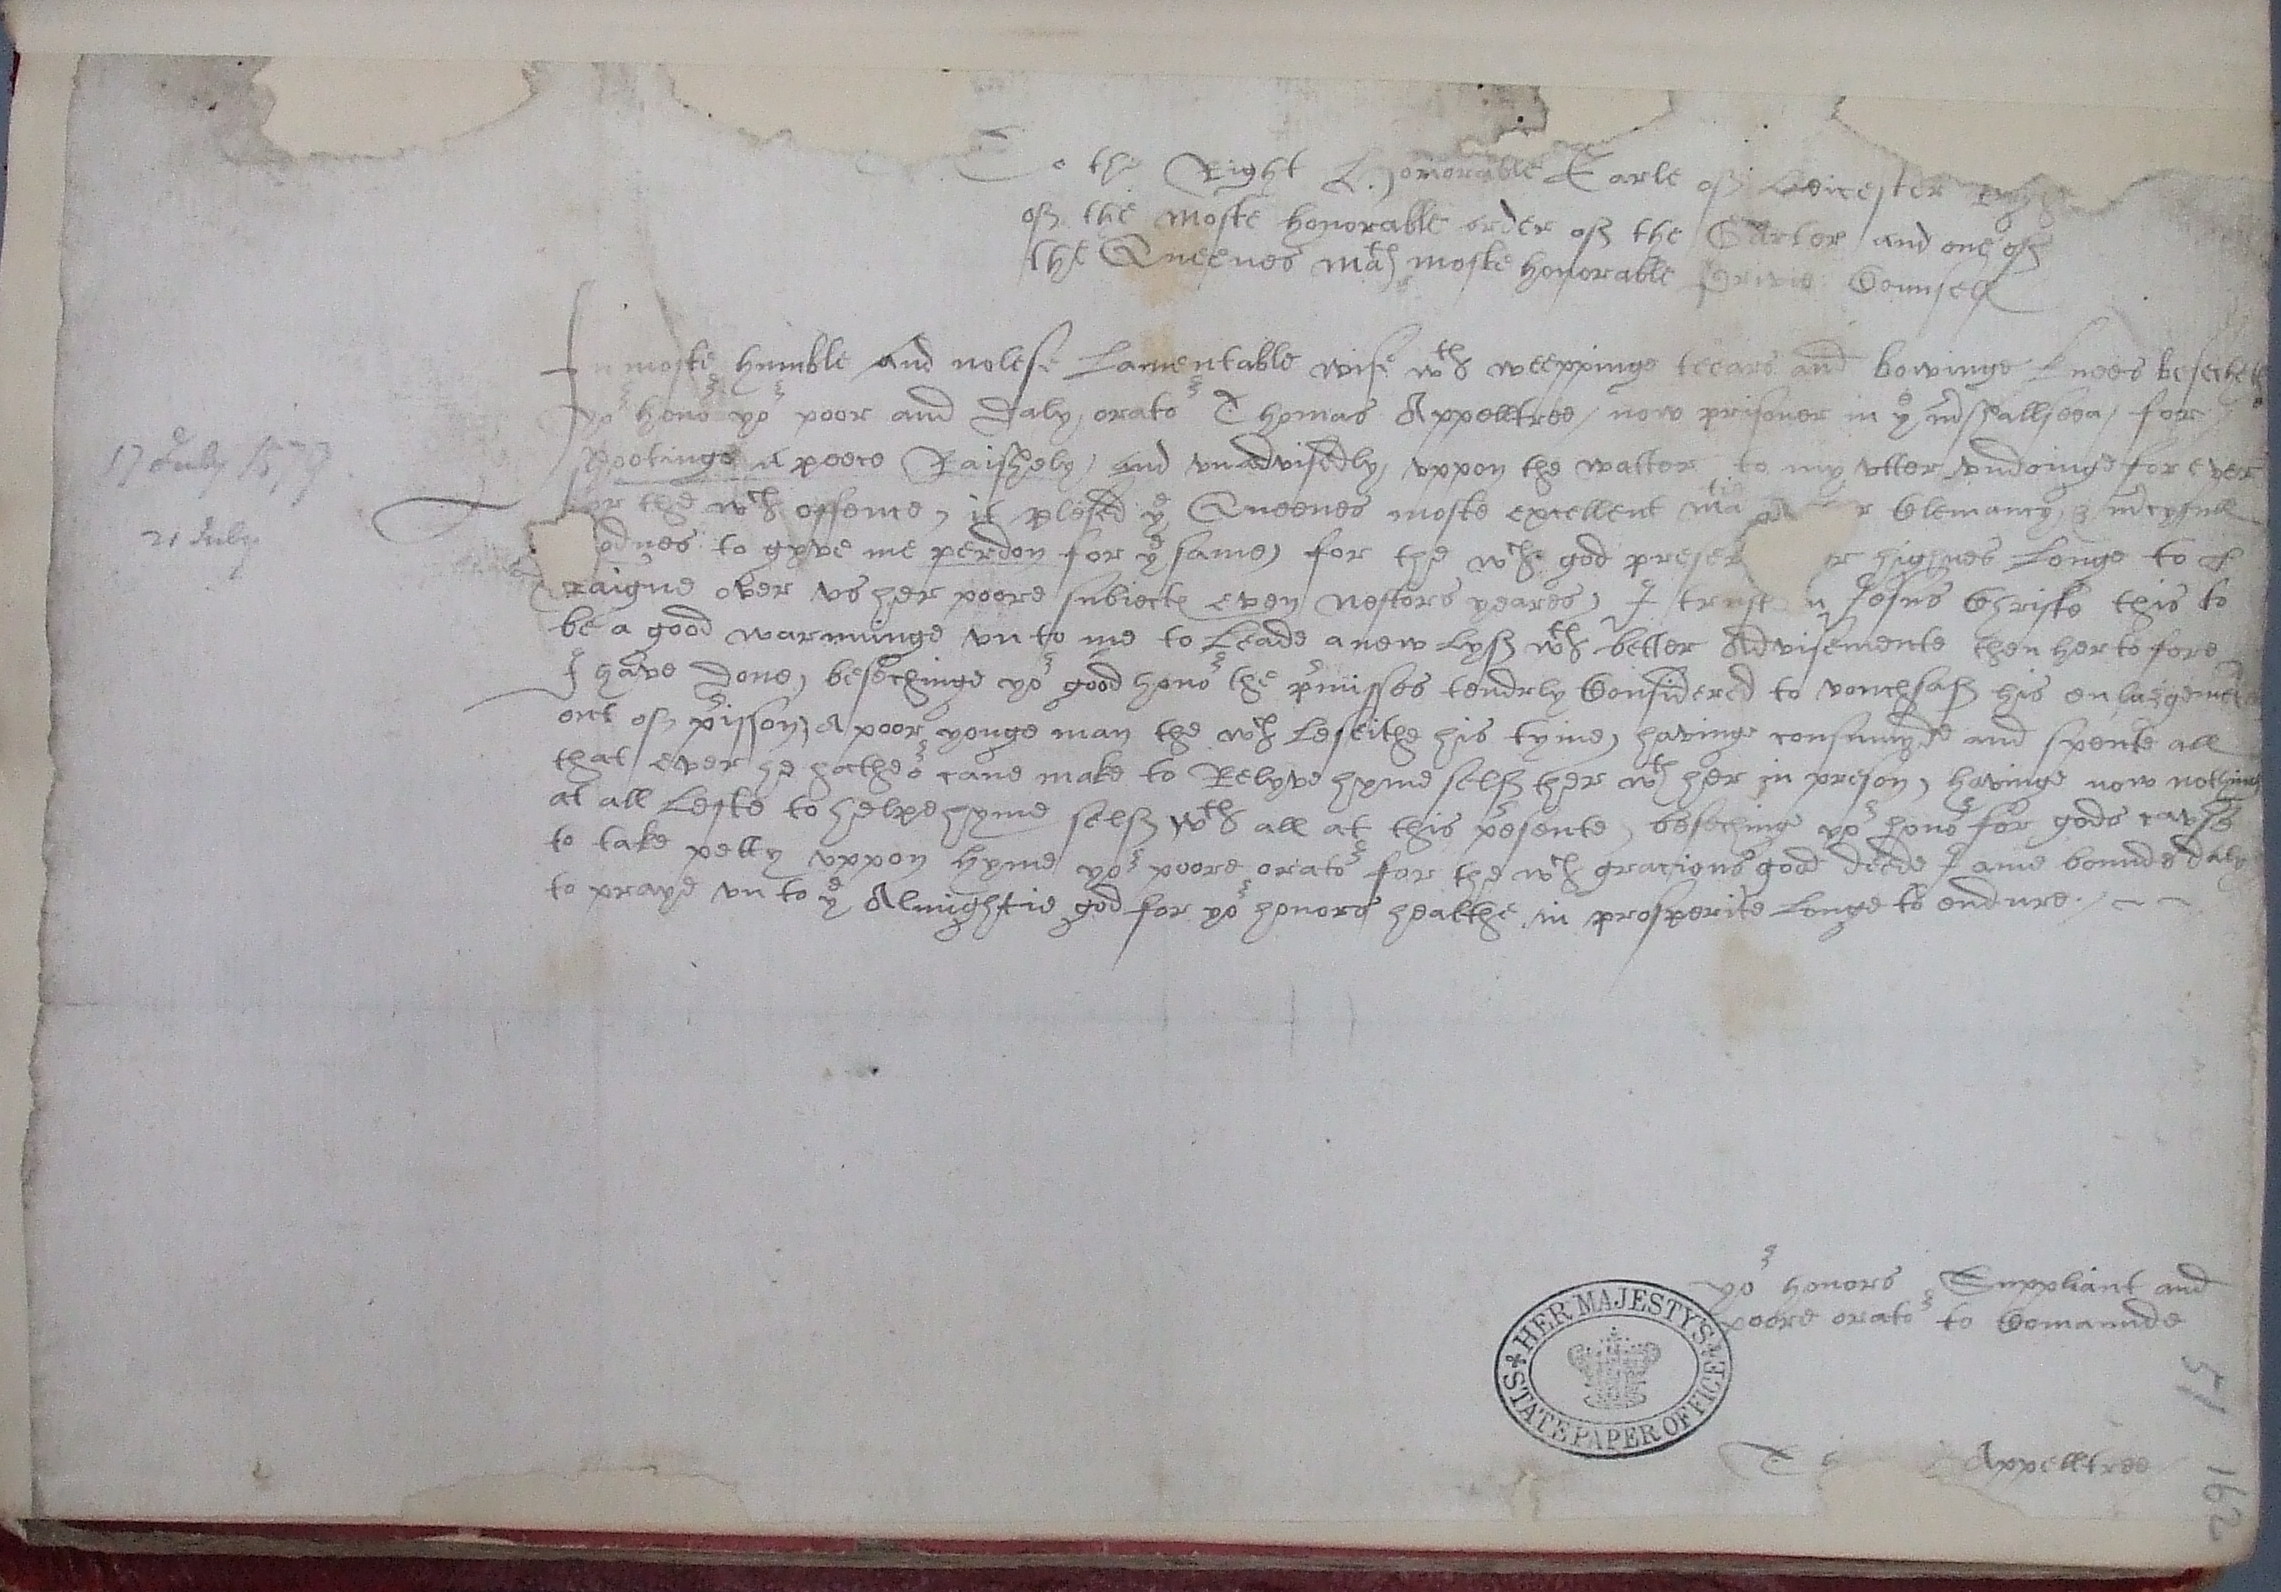 To the Right Honorable Earle off Leicester
off the moste honorable order off the Garter and one off
the Queenes Matis moste honorable Privie Counsell
In moste humble and nolese Lamentable wise wth weeppinge teears and bowinge knees besechethe
yor honor yor poor and Daly orator Thomas Appelltree / now prisoner in ye mrshallseea / for
shootinge a peece Raishely, and vnadvisedly, vppon the watter to my vtter vndoinge for ever
for the wch offence, it plesed ye Queenes moste excellent Matie r Clemancy &
odnes to gyve me perdon for ye same, for the wch god preser r highnes Longe to
raigne over vs her poore subiectes even nestors yeares, I trust n Jesus Christe this to
be a good warninnge vn to me to Leade a new Lyff wth better Advisemente then her to fore
I have Done, besechinge yor good honor the pmisses tendrly Considered to vouchsaff his enlargement
out off prisson, A poor yonge man the wch Leseithe his tyme, havinge consumede and spente all
that ever he hathe or cane make to Relyve hyme selff ther wth her in preson, havinge now nothinge
at all Lefte to helpe hyme selff wth all at this presente, beseching yor honor for gods cavse
to take petty vppon hyme yor poore orator for the wch gracious good deede I ame bounde daly
to praye vn to ye Almightie god for yor honors healthe in prosperite Longe to endure
17 July 1579
21 July
yor honors Suppliant and
poore orator to Comannde
Th Appelltree
HER MAJESTY'S STATE PAPER OFFICE
51
162